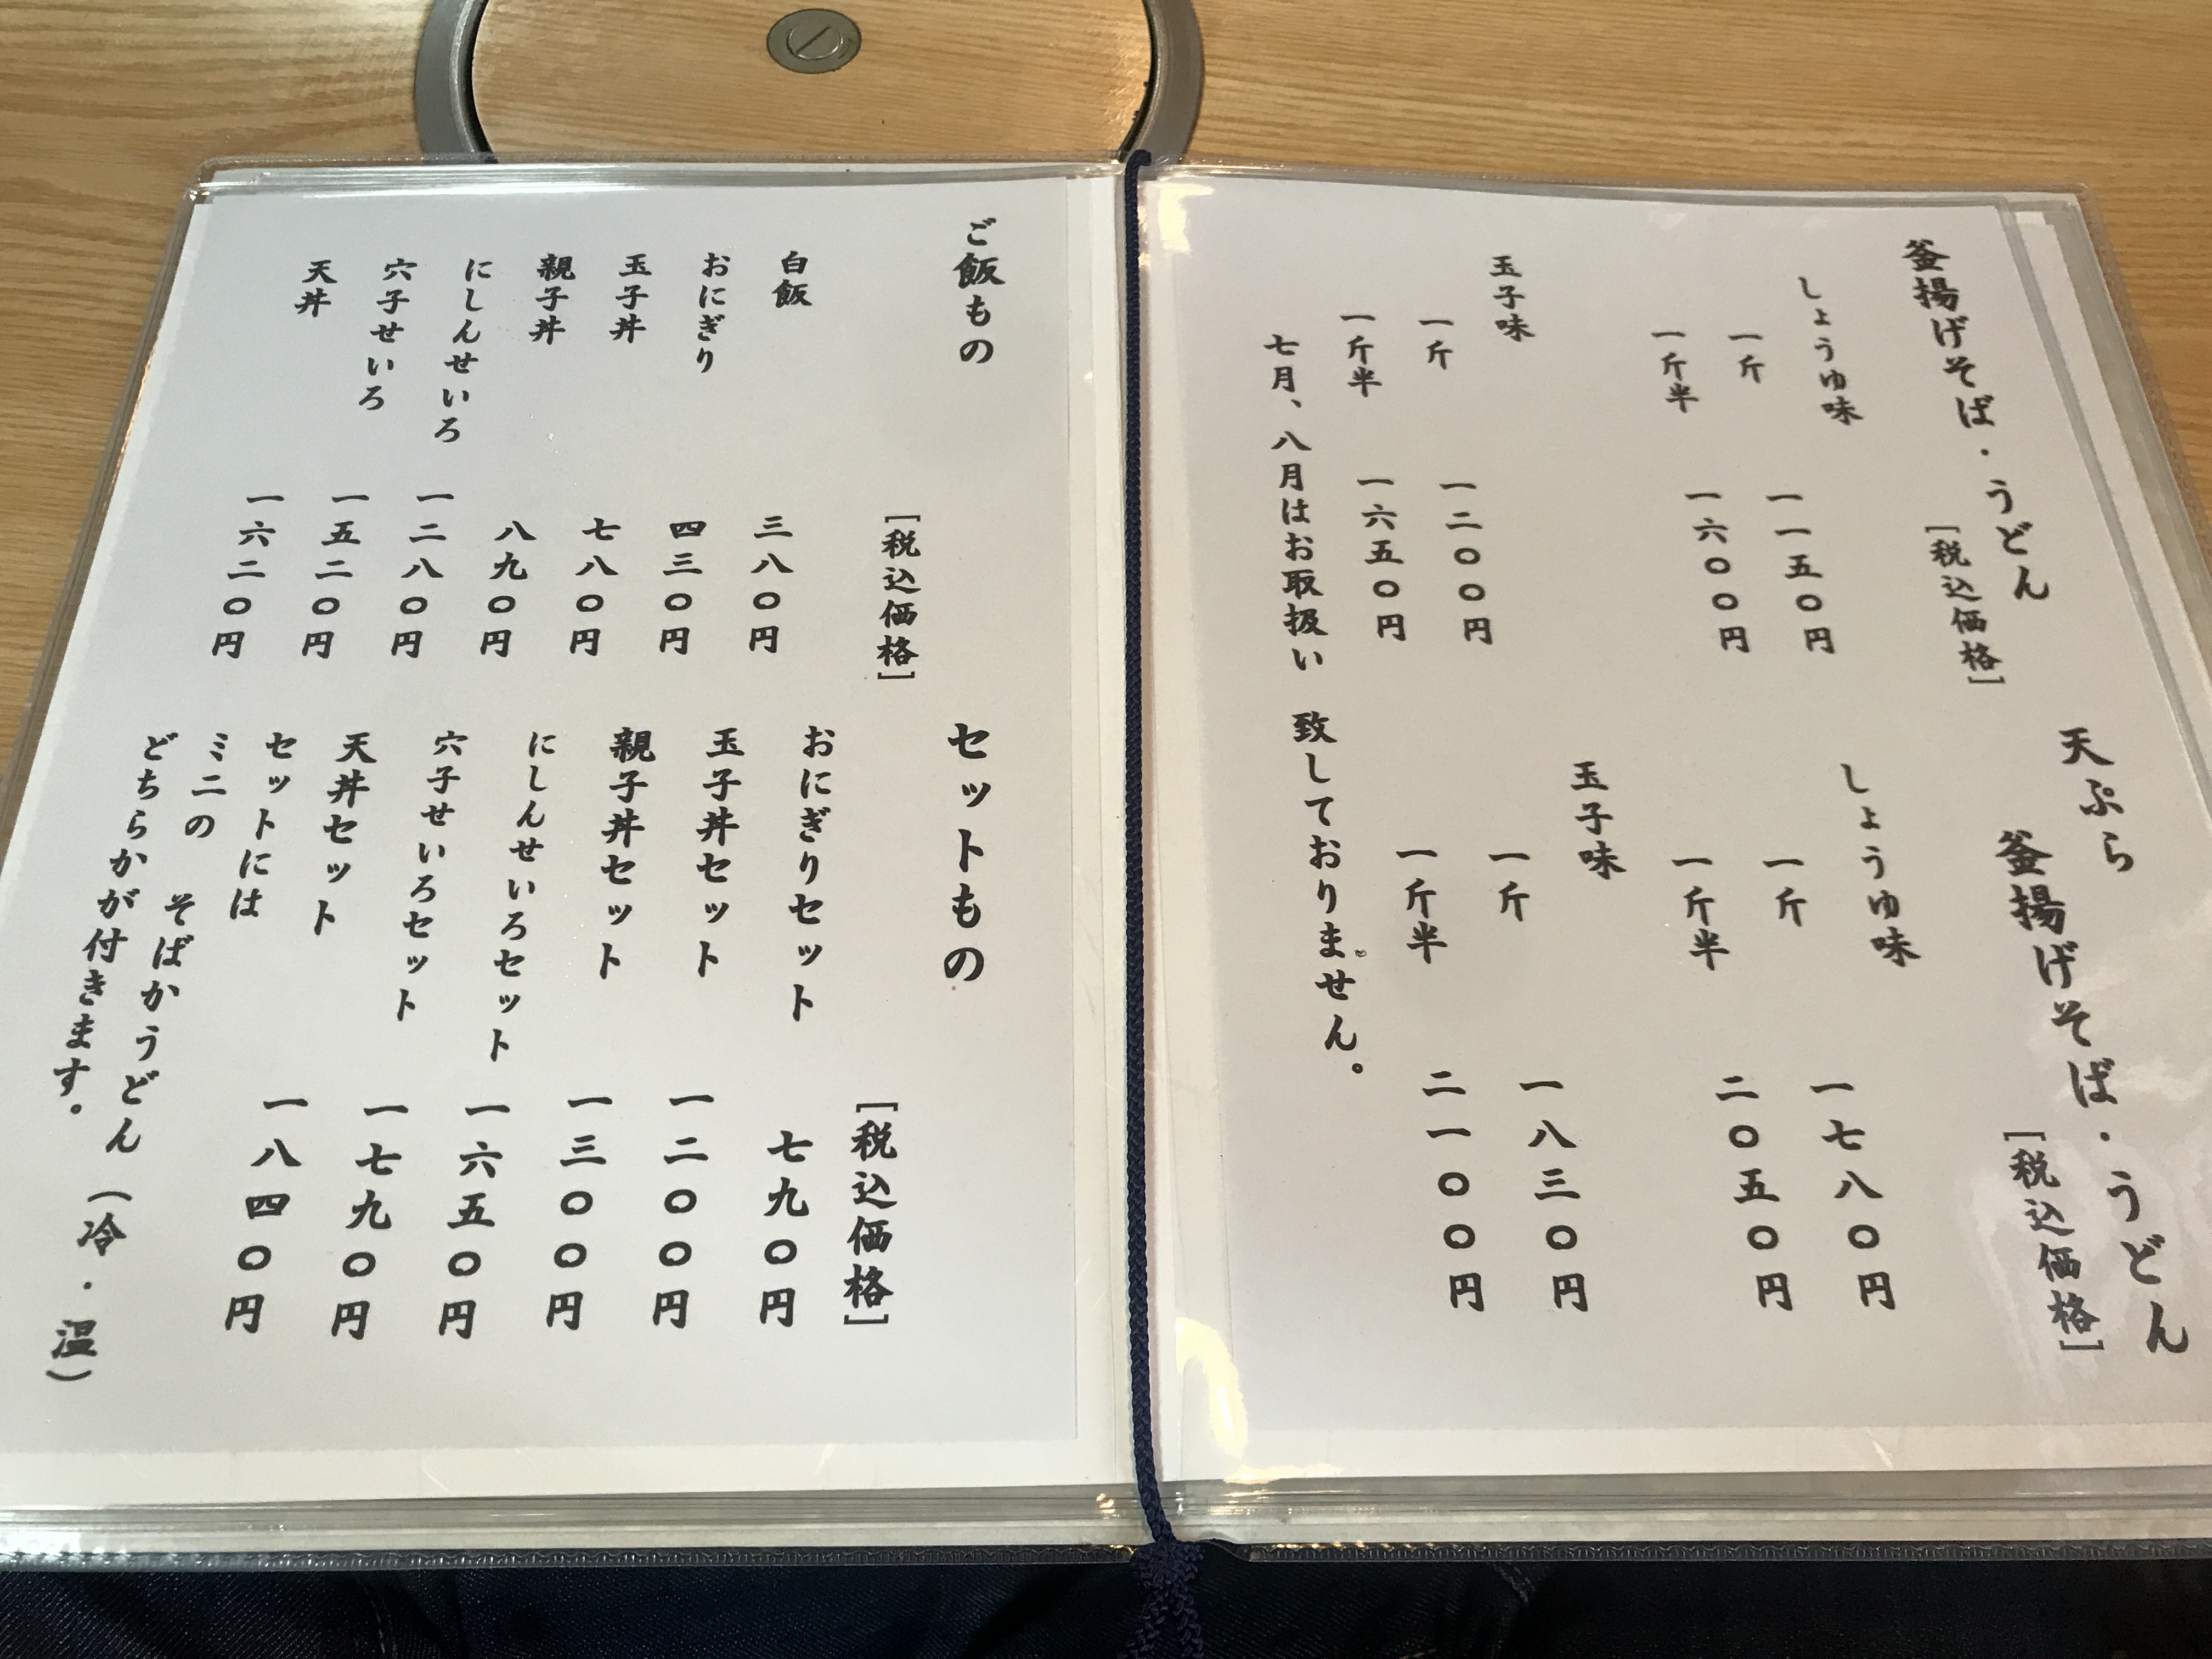 釜揚げそば・うどん
[税込価格]
しょうゆ味
一斤 一一五〇円
一斤半 一六〇〇円
玉子味
一斤 一二〇〇円
一斤半 一六五〇円
天ぷら
釜揚げそば・うどん
[税込価格]
しょうゆ味
一斤 一七八〇円
一斤半 二〇五〇円
玉子味
一斤 一八三〇円
一斤半 二一〇〇円
七月、八月はお取扱い 致しておりません。
ご飯もの
[税込価格]
白飯 三八〇円
おにぎり 四三〇円
玉子丼 七八〇円
親子丼 八九〇円
にしんせいろ 一二八〇円
穴子せいろ 一五二〇円
天丼 一六二〇円
セットもの
[税込価格]
おにぎりセット 七九〇円
玉子丼セット 一二〇〇円
親子丼セット 一三〇〇円
にしんせいろセット 一六五〇円
穴子せいろセット 一七九〇円
天丼セット 一八四〇円
セットには
ミニの そばかうどん（冷・温）
どちらかが付きます。